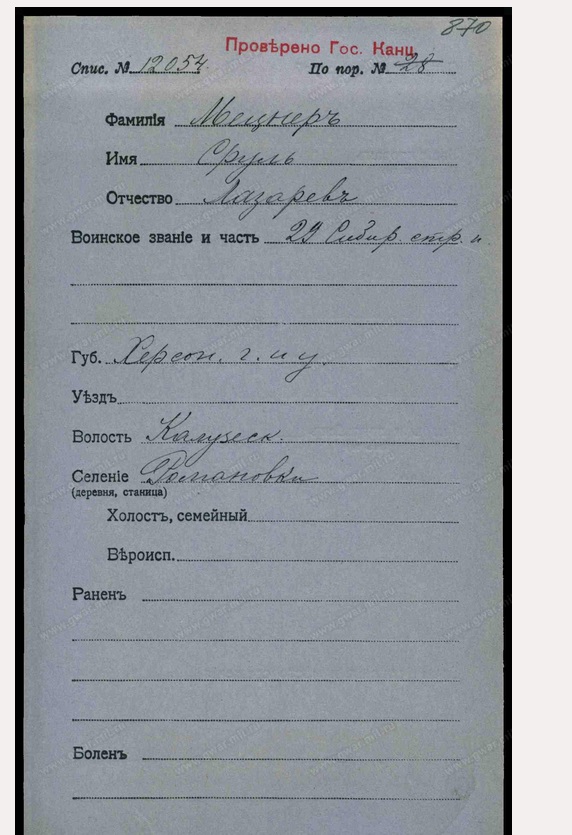 870
Провѣрено Гос. Канц.
Спис. № 12054. По пор. № 28
Фамилія Мецнеръ
Имя Сруль
Отчество Лазаревъ
Воинское званіе и часть 29 Сибир. стр. п
Губ. Херсон. г. и у.
Уѣздъ
Волость Калужск.
Селеніе Романовки
(деревня, станица)
Холостъ, семейный
Вѣроисп.
Раненъ
Боленъ